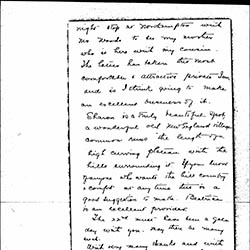 night stop at Northampton with
Mr Woods to see my mother
who is here with my cousin.
The latter has taken this most
comfortable & attractive private Inn
and is I think going to make
an excellent business of it.
Sharon is a truly beautiful spot,
a wonderful old New England village
common runs the length of a
high curving plateau with the
hills surrounding it. If you know
anyone who wants the hill country
& comfort at any time this is a
good suggestion to make. Beatrice
is an excellent provider.
The 22nd must have been a gala
day with you. May there be many
such.
With very many thanks and with